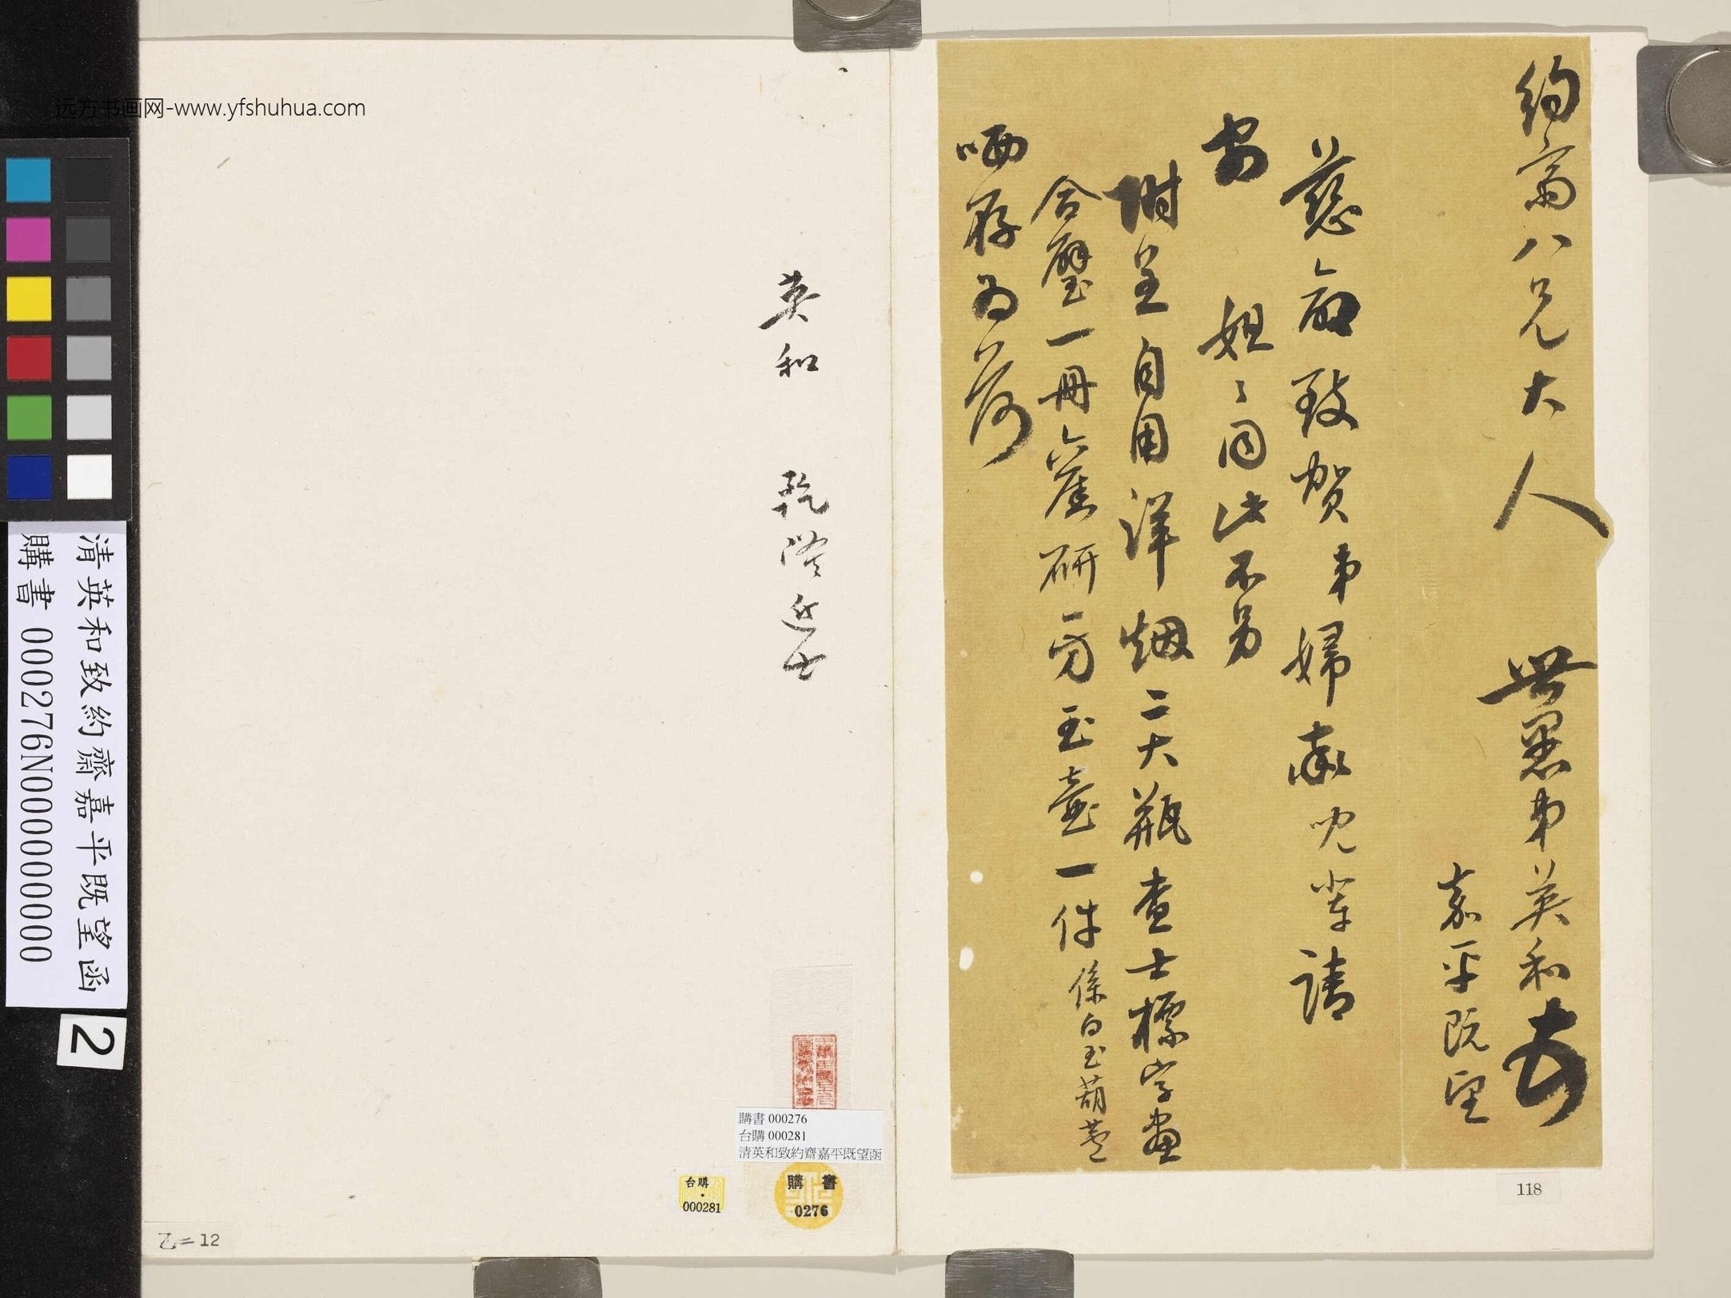 约斋八兄大人
世愚弟英和頓
嘉平既望
慈闱致贺弟婦率兒輩請
安
姐々同此不另
附呈自用洋烟二大瓶查士標字畫
合璧一冊 研一方玉壺一件係白玉葫蘆
哂存為荷
英和 乾隆進士
远方书画网-www.yfshuhua.com
清英和致約齋嘉平既望函
購書 000276N000000000
2
購書 000276
台購 000281
清英和致約齋嘉平既望函
台購
・
000281
購書
0276
118
乙=12